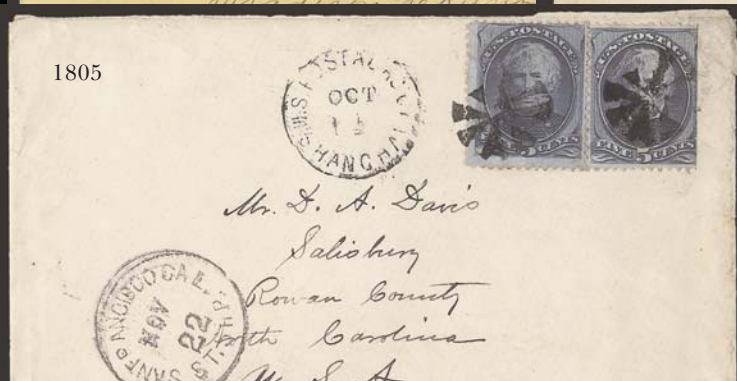 1805
U.S. POSTAL AGCY.
OCT
SHANGHAI
U.S. POSTAGE
FIVE 5 CENTS
U.S. POSTAGE
FIVE 5 CENTS
Mr. D. A. Davis
Salisbury
Rowan County
North Carolina
U. S. A.
SAN FRANCISCO CAL.
NOV
22